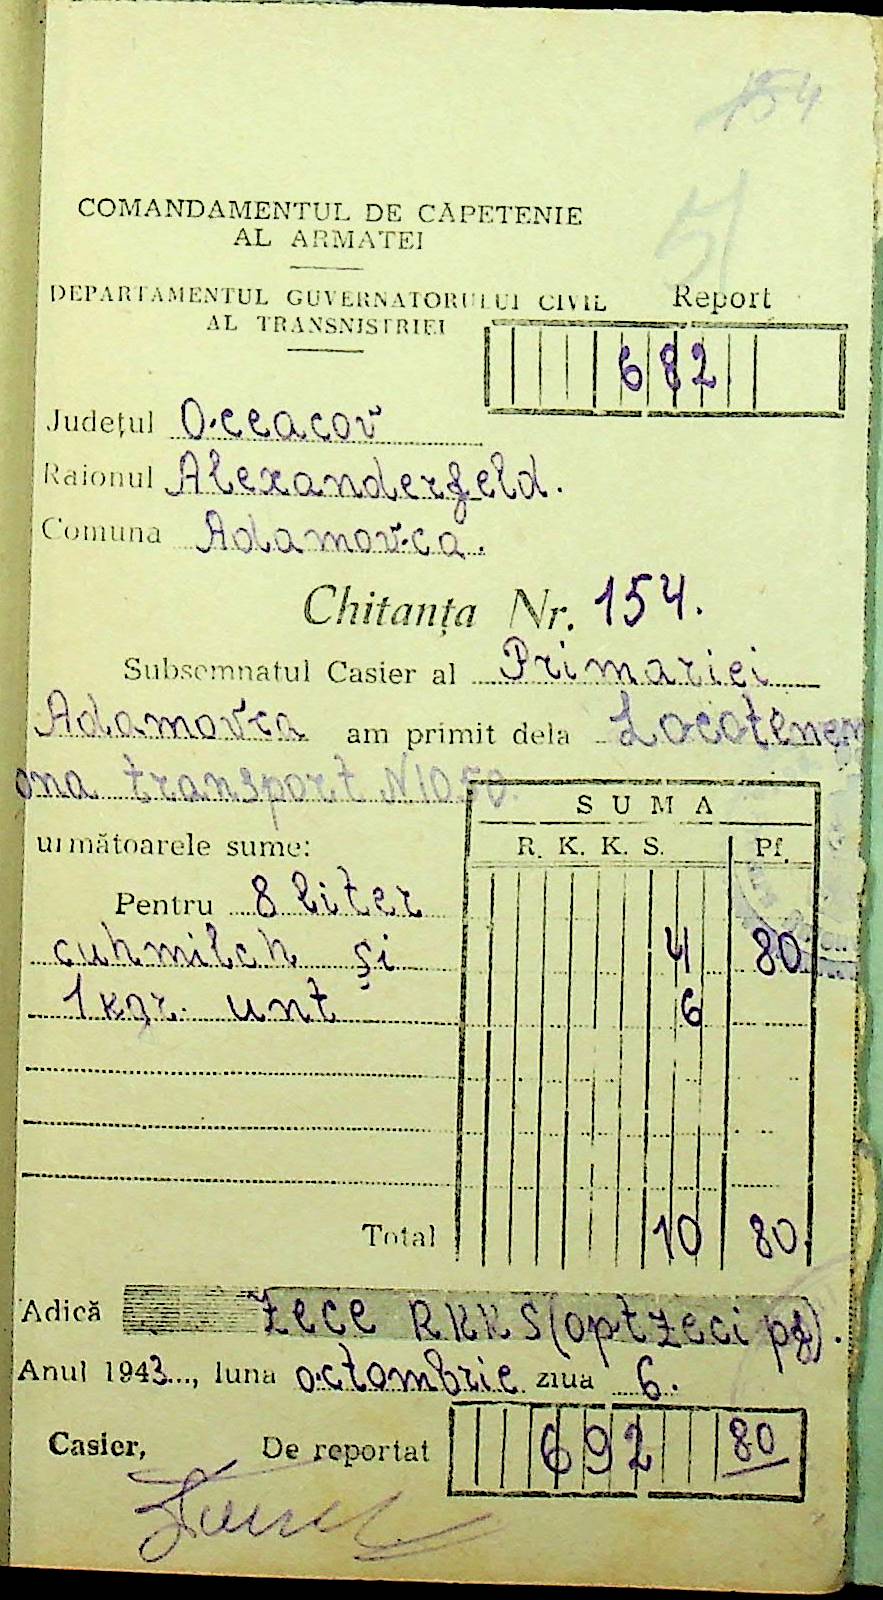 154
51
COMANDAMENTUL DE CĂPETENIE
AL ARMATEI
DEPARTAMENTUL GUVERNATORULUI CIVIL
AL TRANSNISTRIEI
Report
682
Județul Oceacov
Raionul Alexanderfeld.
Comuna Adamovca.
Chitanța Nr. 154.
Subsemnatul Casier al Primariei
Adamovca am primit dela Locotenen
ona transport N 1050.
următoarele sume:
SUMA
R. K. K. S. Pf.
Pentru 8 liter
cuhmilch și 4 80
1 kgr. unt 6
Total 10 80.
Adică zece RKKS (optzeci pf).
Anul 1943..., luna octombrie ziua 6.
Casier, De reportat 692 80